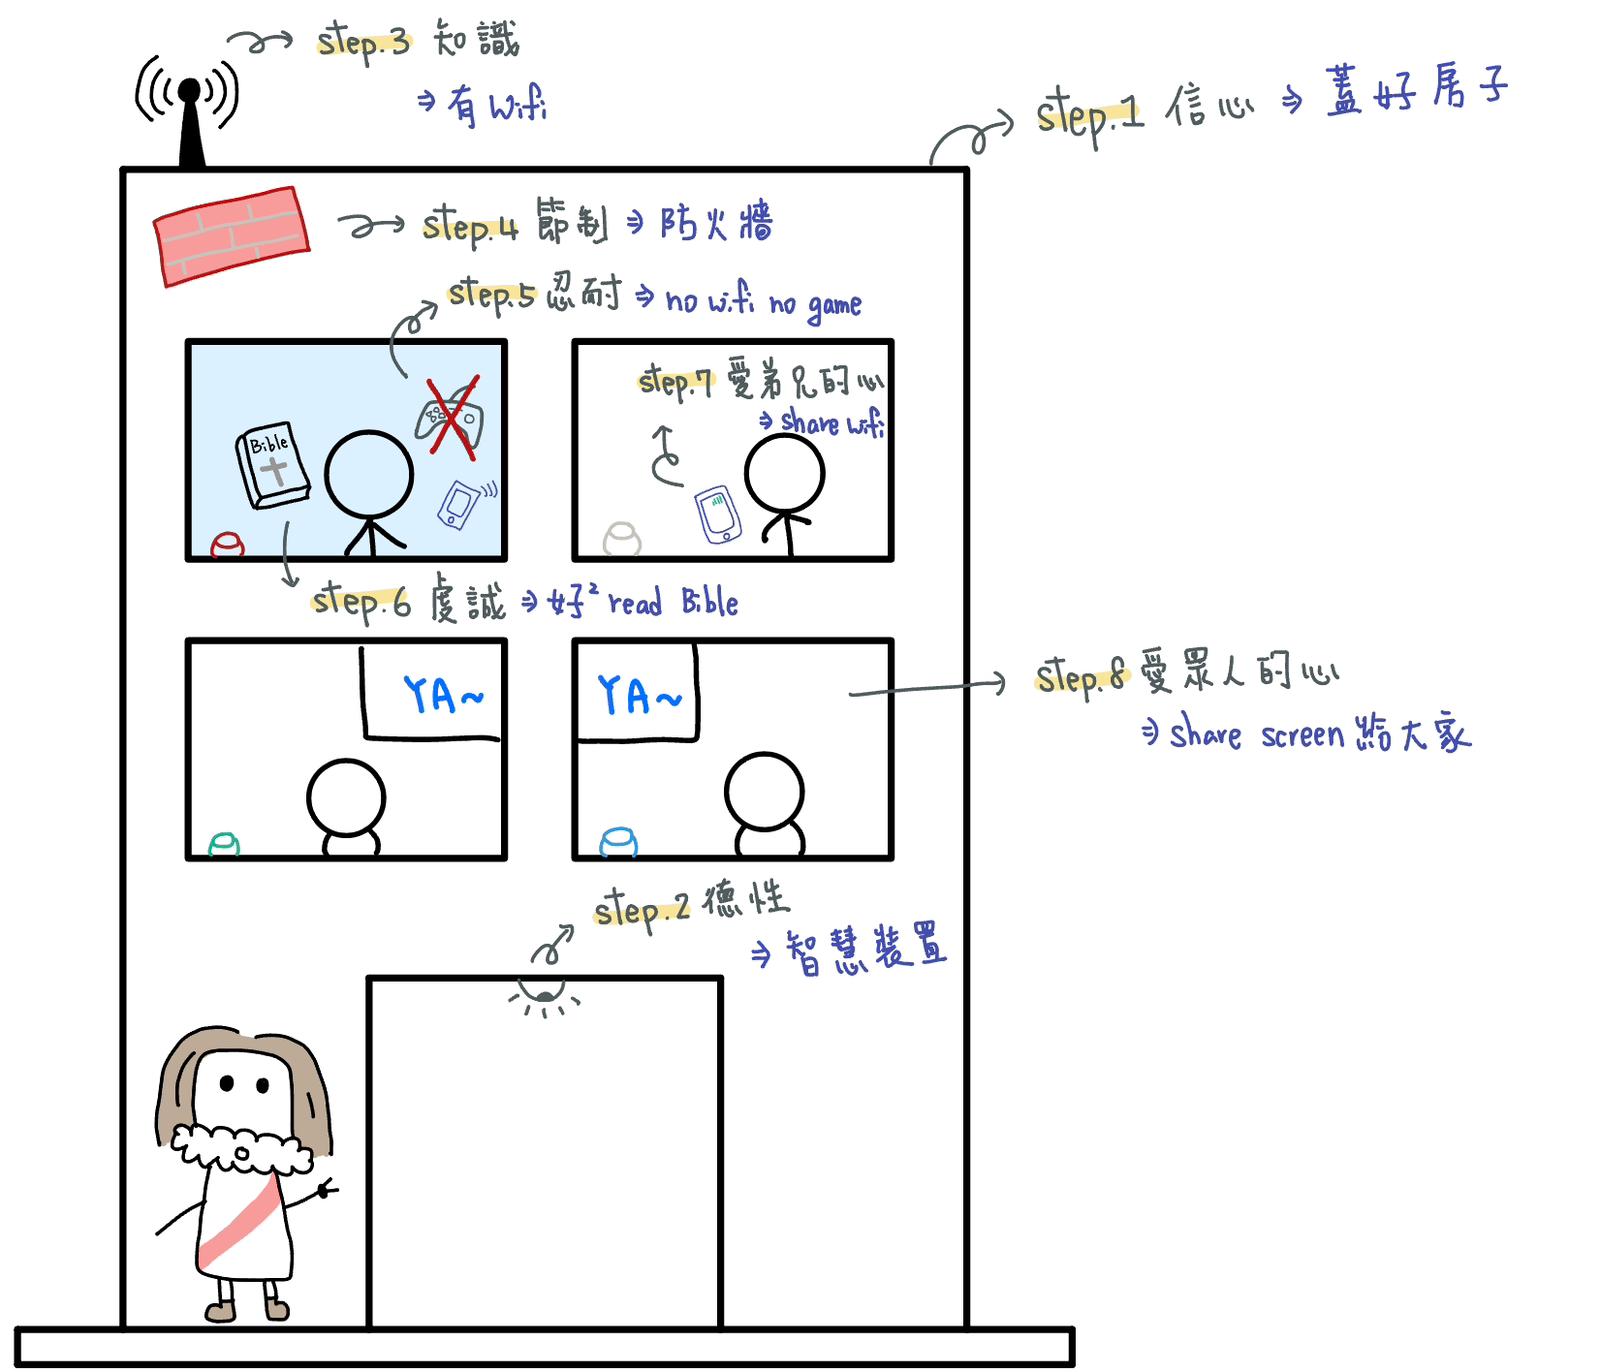 step.3 知識
⇒ 有 wifi
step.1 信心 ⇒ 蓋好房子
step.4 節制 ⇒ 防火牆
step.5 忍耐 ⇒ no wifi no game
step.7 愛弟兄的心
⇒ share wifi
Bible
step.6 虔誠 ⇒ 好² read Bible
YA~
YA~
step.8 愛眾人的心
⇒ share screen 給大家
step.2 德性
⇒ 智慧裝置